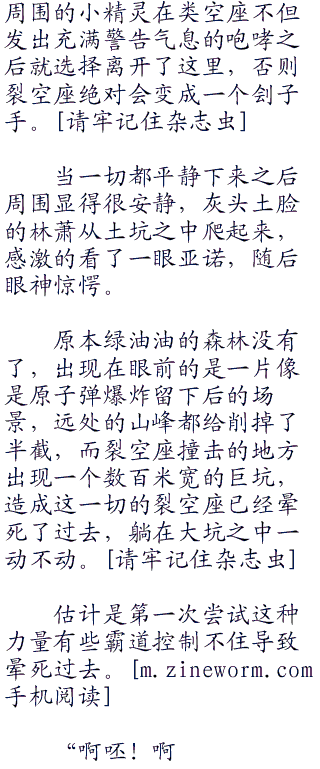 周围的小精灵在类空座不但
发出充满警告气息的咆哮之
后就选择离开了这里，否则
裂空座绝对会变成一个刽子
手。[请牢记住杂志虫]
当一切都平静下来之后
周围显得很安静，灰头土脸
的林萧从土坑之中爬起来，
感激的看了一眼亚诺，随后
眼神惊愕。
原本绿油油的森林没有
了，出现在眼前的是一片像
是原子弹爆炸留下后的场
景，远处的山峰都给削掉了
半截，而裂空座撞击的地方
出现一个数百米宽的巨坑，
造成这一切的裂空座已经晕
死了过去，躺在大坑之中一
动不动。[请牢记住杂志虫]
估计是第一次尝试这种
力量有些霸道控制不住导致
晕死过去。[m.zineworm.com
手机阅读]
“啊呸！啊